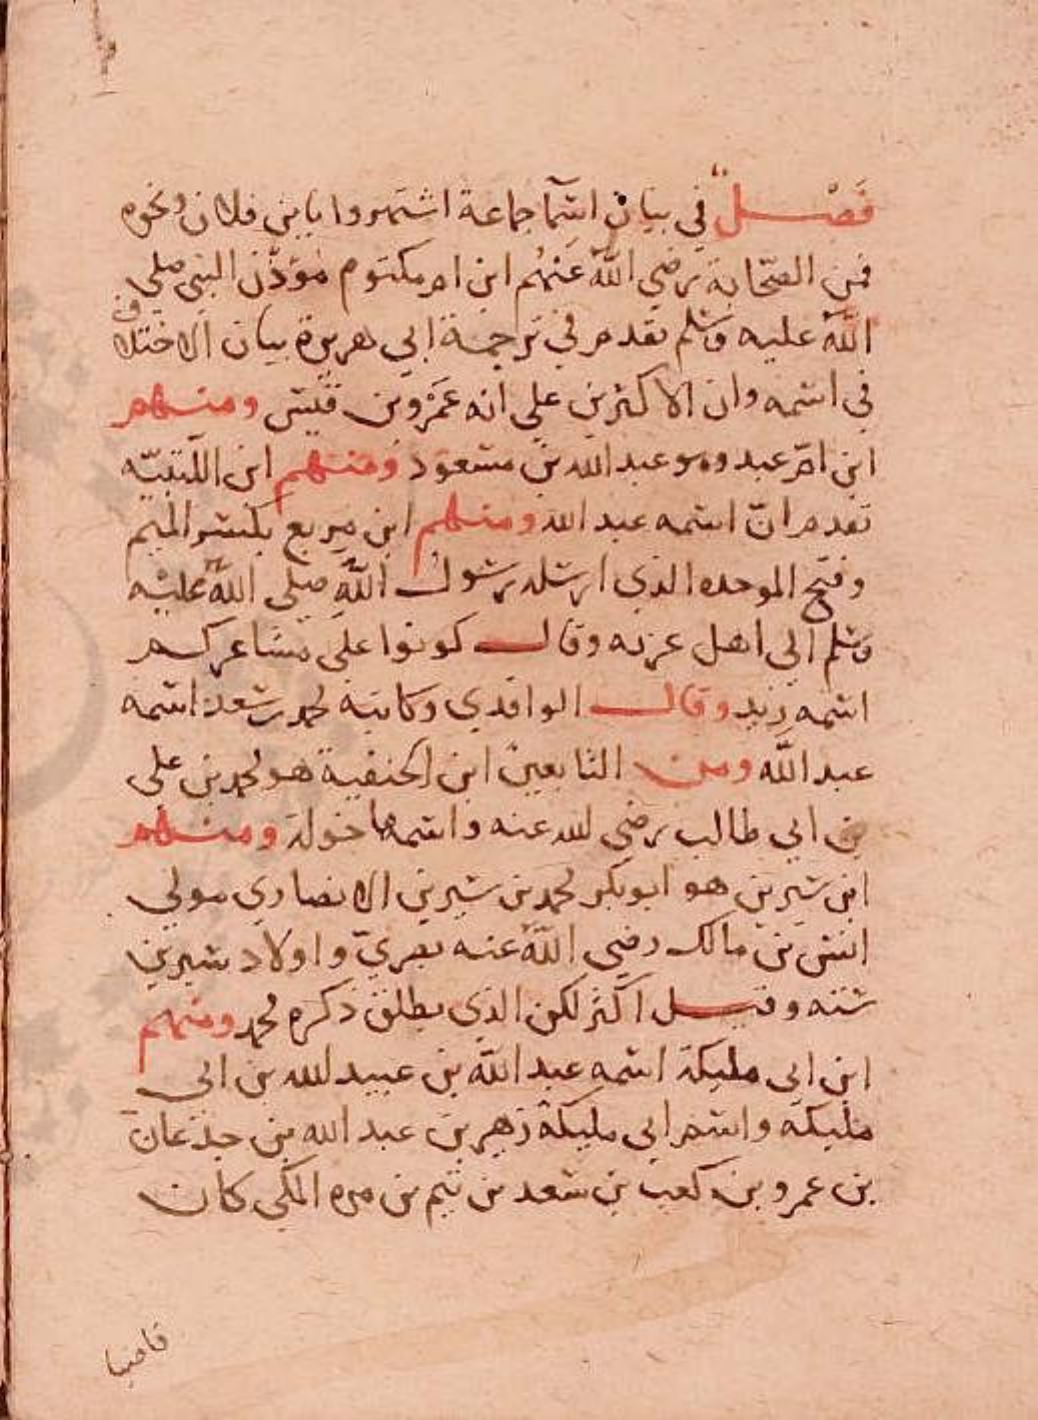 فصل في بيان اسما جماعة اشتهروا بابن فلان ونحوه
فمن الصحابة رضي الله عنهم ابن ام مكتوم مؤذن النبي صلى
الله عليه وسلم تقدم في ترجمة ابي هريرة بيان الاختلاف
في اسمه وان الاكثرين على انه عمرو بن قيس ومنهم
ابن ام عبد وهو عبد الله بن مسعود ومنهم ابن اللتبية
تقدم ان اسمه عبد الله ومنهم ابن مربع بكسر الميم
وفتح الموحده الذي ارسله رسول الله صلى الله عليه
وسلم الى اهل عرنه وقال كونوا على مشاعركم
اسمه زيد وقال الواقدي وكاتبه محمد بن سعد اسمه
عبد الله ومن التابعين ابن الحنفية هو محمد بن على
بن ابي طالب رضي الله عنه واسمها خولة ومنهم
ابن سيرين هو ابو بكر محمد بن سيرين الانصاري مولى
انس بن مالك رضي الله عنه بصري واولاد سيرين
ستة وقيل اكثر لكن الذي يطلق ذكره محمد ومنهم
ابن ابى مليكة اسمه عبد الله بن عبيد الله بن ابى
مليكة واسم ابى مليكة زهير بن عبد الله بن جدعان
بن عمرو بن كعب بن سعد بن تيم بن مره المكى كان
قاضيا